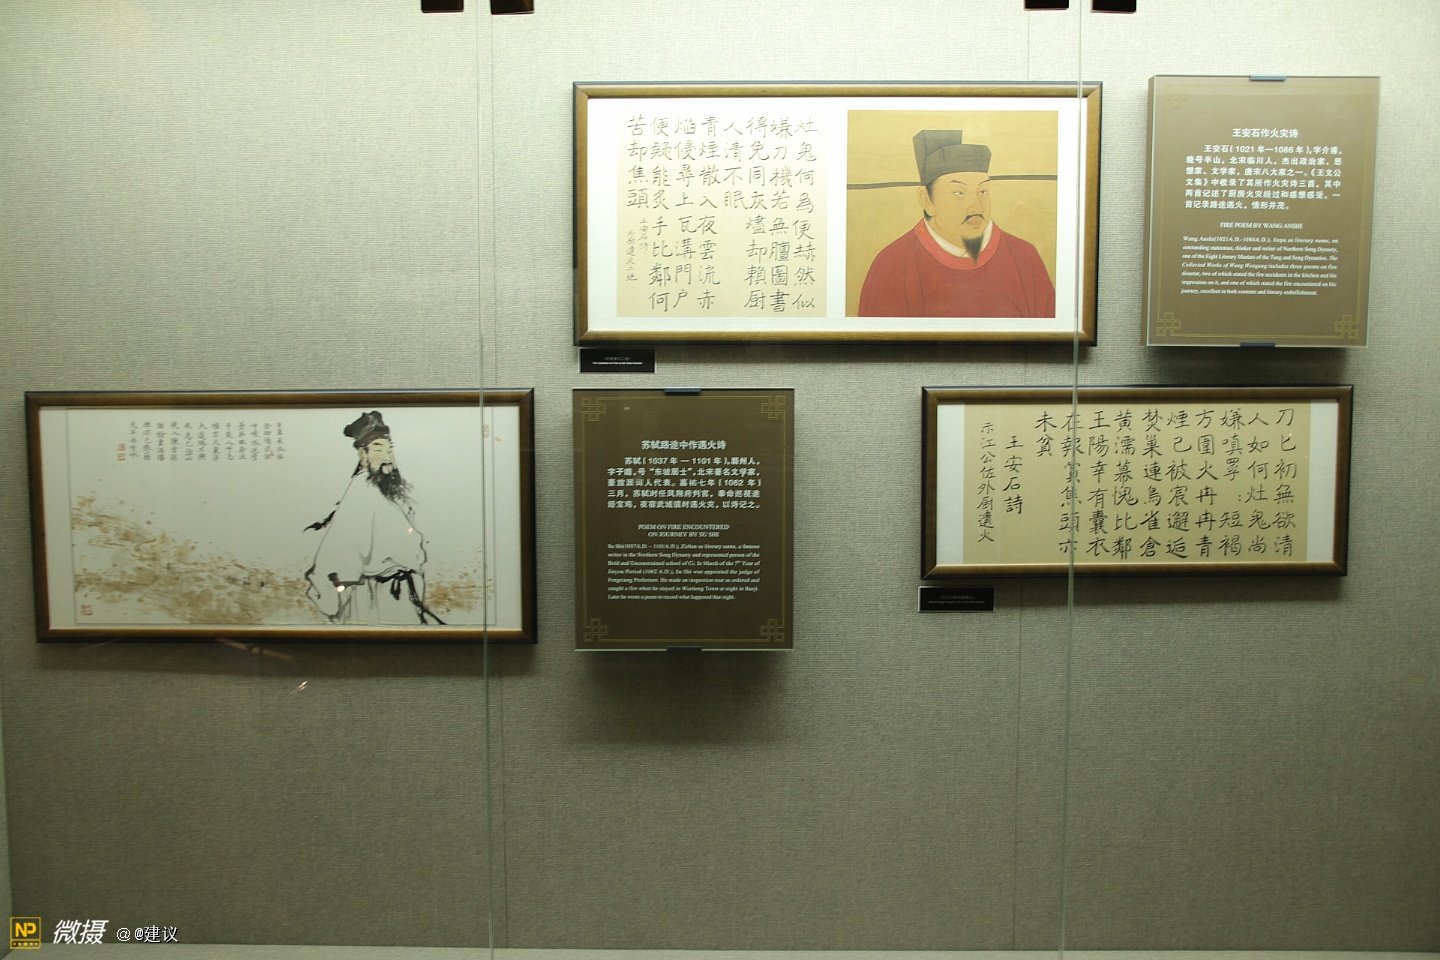 灶鬼何為便赫然似
嫌刀機若無膻圖書
得免同灰燼却賴厨
人清不眠
青煙散入夜雲流赤
焰侵尋上瓦溝門户
便疑能炙手比鄰何
苦却焦頭
王安石詩
外厨遺火二絶
王安石作火灾诗
王安石（1021 年—1086 年），字介甫，
晚号半山，北宋临川人，杰出政治家、思
想家、文学家，唐宋八大家之一。《王文公
文集》中收录了其所作火灾诗三首，其中
两首记述了厨房火灾经过和感想感受，一
首记录路途遇火，情形并茂。
FIRE POEM BY WANG ANSHI
Wang Anshi(1021A.D.-1086A.D.), Jiepu as literary name, an
outstanding statesman, thinker and writer of Northern Song Dynasty,
one of the Eight Literary Masters of the Tang and Song Dynasties. The
Collected Works of Wang Wengong includes three poems on fire
disaster, two of which stated the fire accidents in the kitchen and his
impression on it, and one of which stated the fire encountered on his
journey, excellent in both contents and literary embellishment.
苏轼路途中作遇火诗
苏轼（1037 年 — 1101 年），眉州人，
字子瞻，号“东坡居士”，北宋著名文学家，
豪放派词人代表。嘉祐七年（1062 年）
三月，苏轼时任凤翔府判官，奉命巡视途
经宝鸡，夜宿武城镇时遇火灾，以诗记之。
POEM ON FIRE ENCOUNTERED
ON JOURNEY BY SU SHI
Su Shi(1037A.D. – 1101A.D.), Zizhan as literary name, a famous
writer in the Northern Song Dynasty and represented person of the
Bold and Unconstrained school of Ci. In March of the 7th Year of
Jiayou Period (1062 A.D.), Su Shi was appointed the judge of
Fengxiang Prefecture. He made an inspection tour as ordered and
caught a fire when he stayed in Wucheng Town at night in Baoji.
Later he wrote a poem to record what happened that night.
刀匕初無欲清
人如何灶鬼尚
嫌嗔罩：短褐
方圍火冉冉青
煙已被宸邂逅
焚巢連鳥雀倉
黄濡幕愧比鄰
王陽幸有囊衣
在報賞焦頭亦
未貧
王安石詩
示江公佐外厨遺火
NP
微摄
@@建议